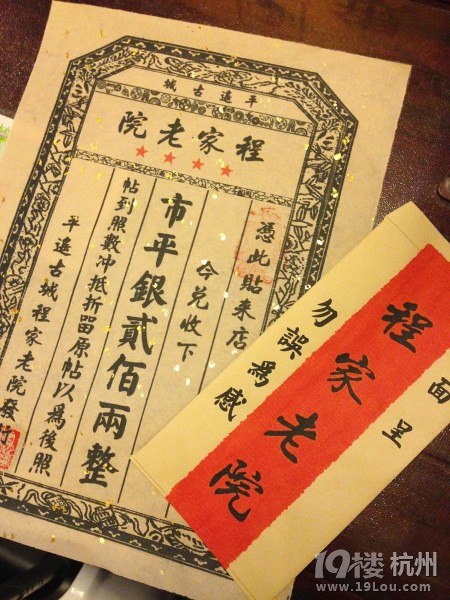 平遥古城
程家老院
憑此貼来店
今兑收下
市平銀貳佰兩整
帖到照數冲抵折留原帖以爲後照
平遥古城程家老院發行
面呈
程家老院
勿誤爲感
19楼 杭州
www.19Lou.com